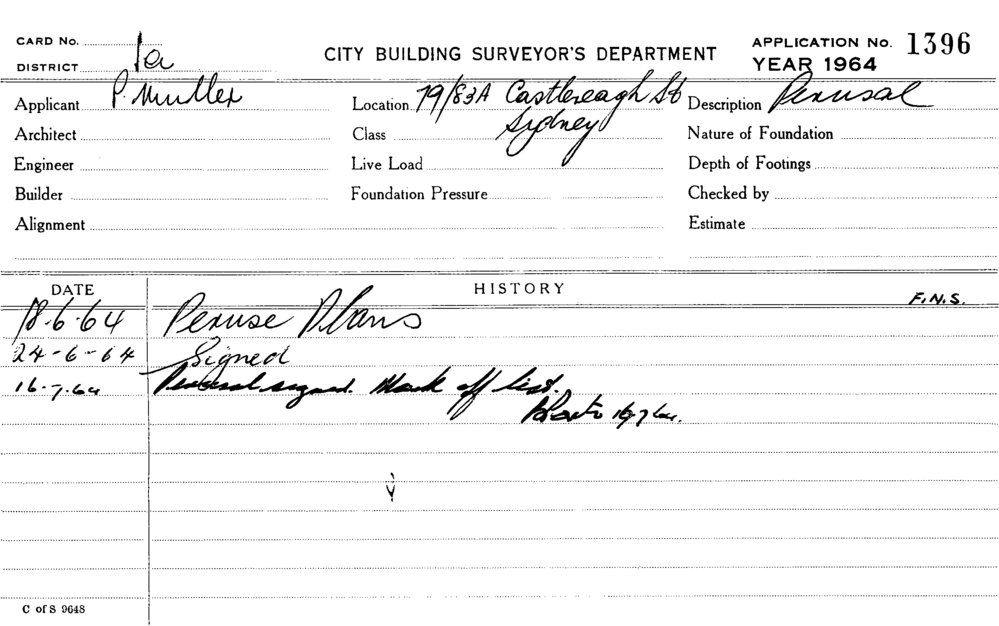 CARD No.
DISTRICT 1a
CITY BUILDING SURVEYOR'S DEPARTMENT
APPLICATION No. 1396
YEAR 1964
Applicant P. Muller
Location 79/83A Castlereagh St
Sydney
Description Perusal
Architect
Class
Nature of Foundation
Engineer
Live Load
Depth of Footings
Builder
Foundation Pressure
Checked by
Alignment
Estimate
DATE
HISTORY
F.N.S.
18-6-64 Peruse Plans
24-6-64 Signed
16.7.64 Perusal signed. Mark off list.
16.7.64.
C of S 9648